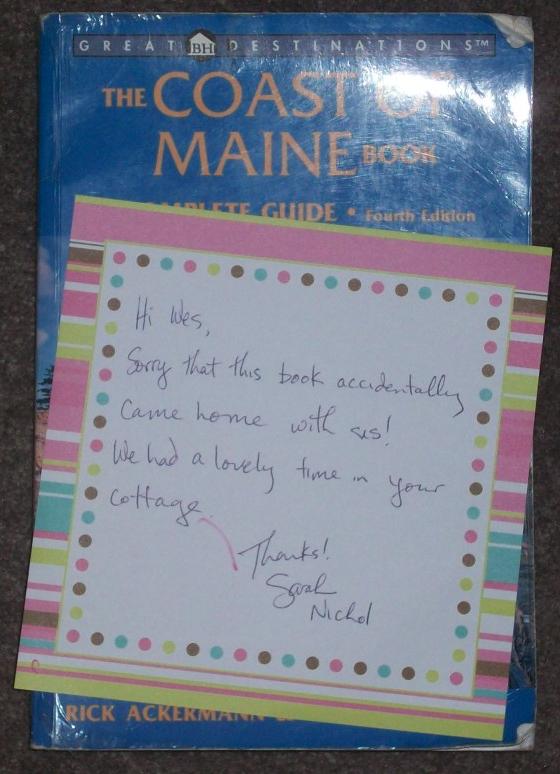 GREAT BH DESTINATIONS™
THE COAST OF
MAINE BOOK
COMPLETE GUIDE • Fourth Edition
Hi Wes,
Sorry that this book accidentally
came home with us!
We had a lovely time in your
cottage.
Thanks!
Sarah
Nichol
RICK ACKERMANN